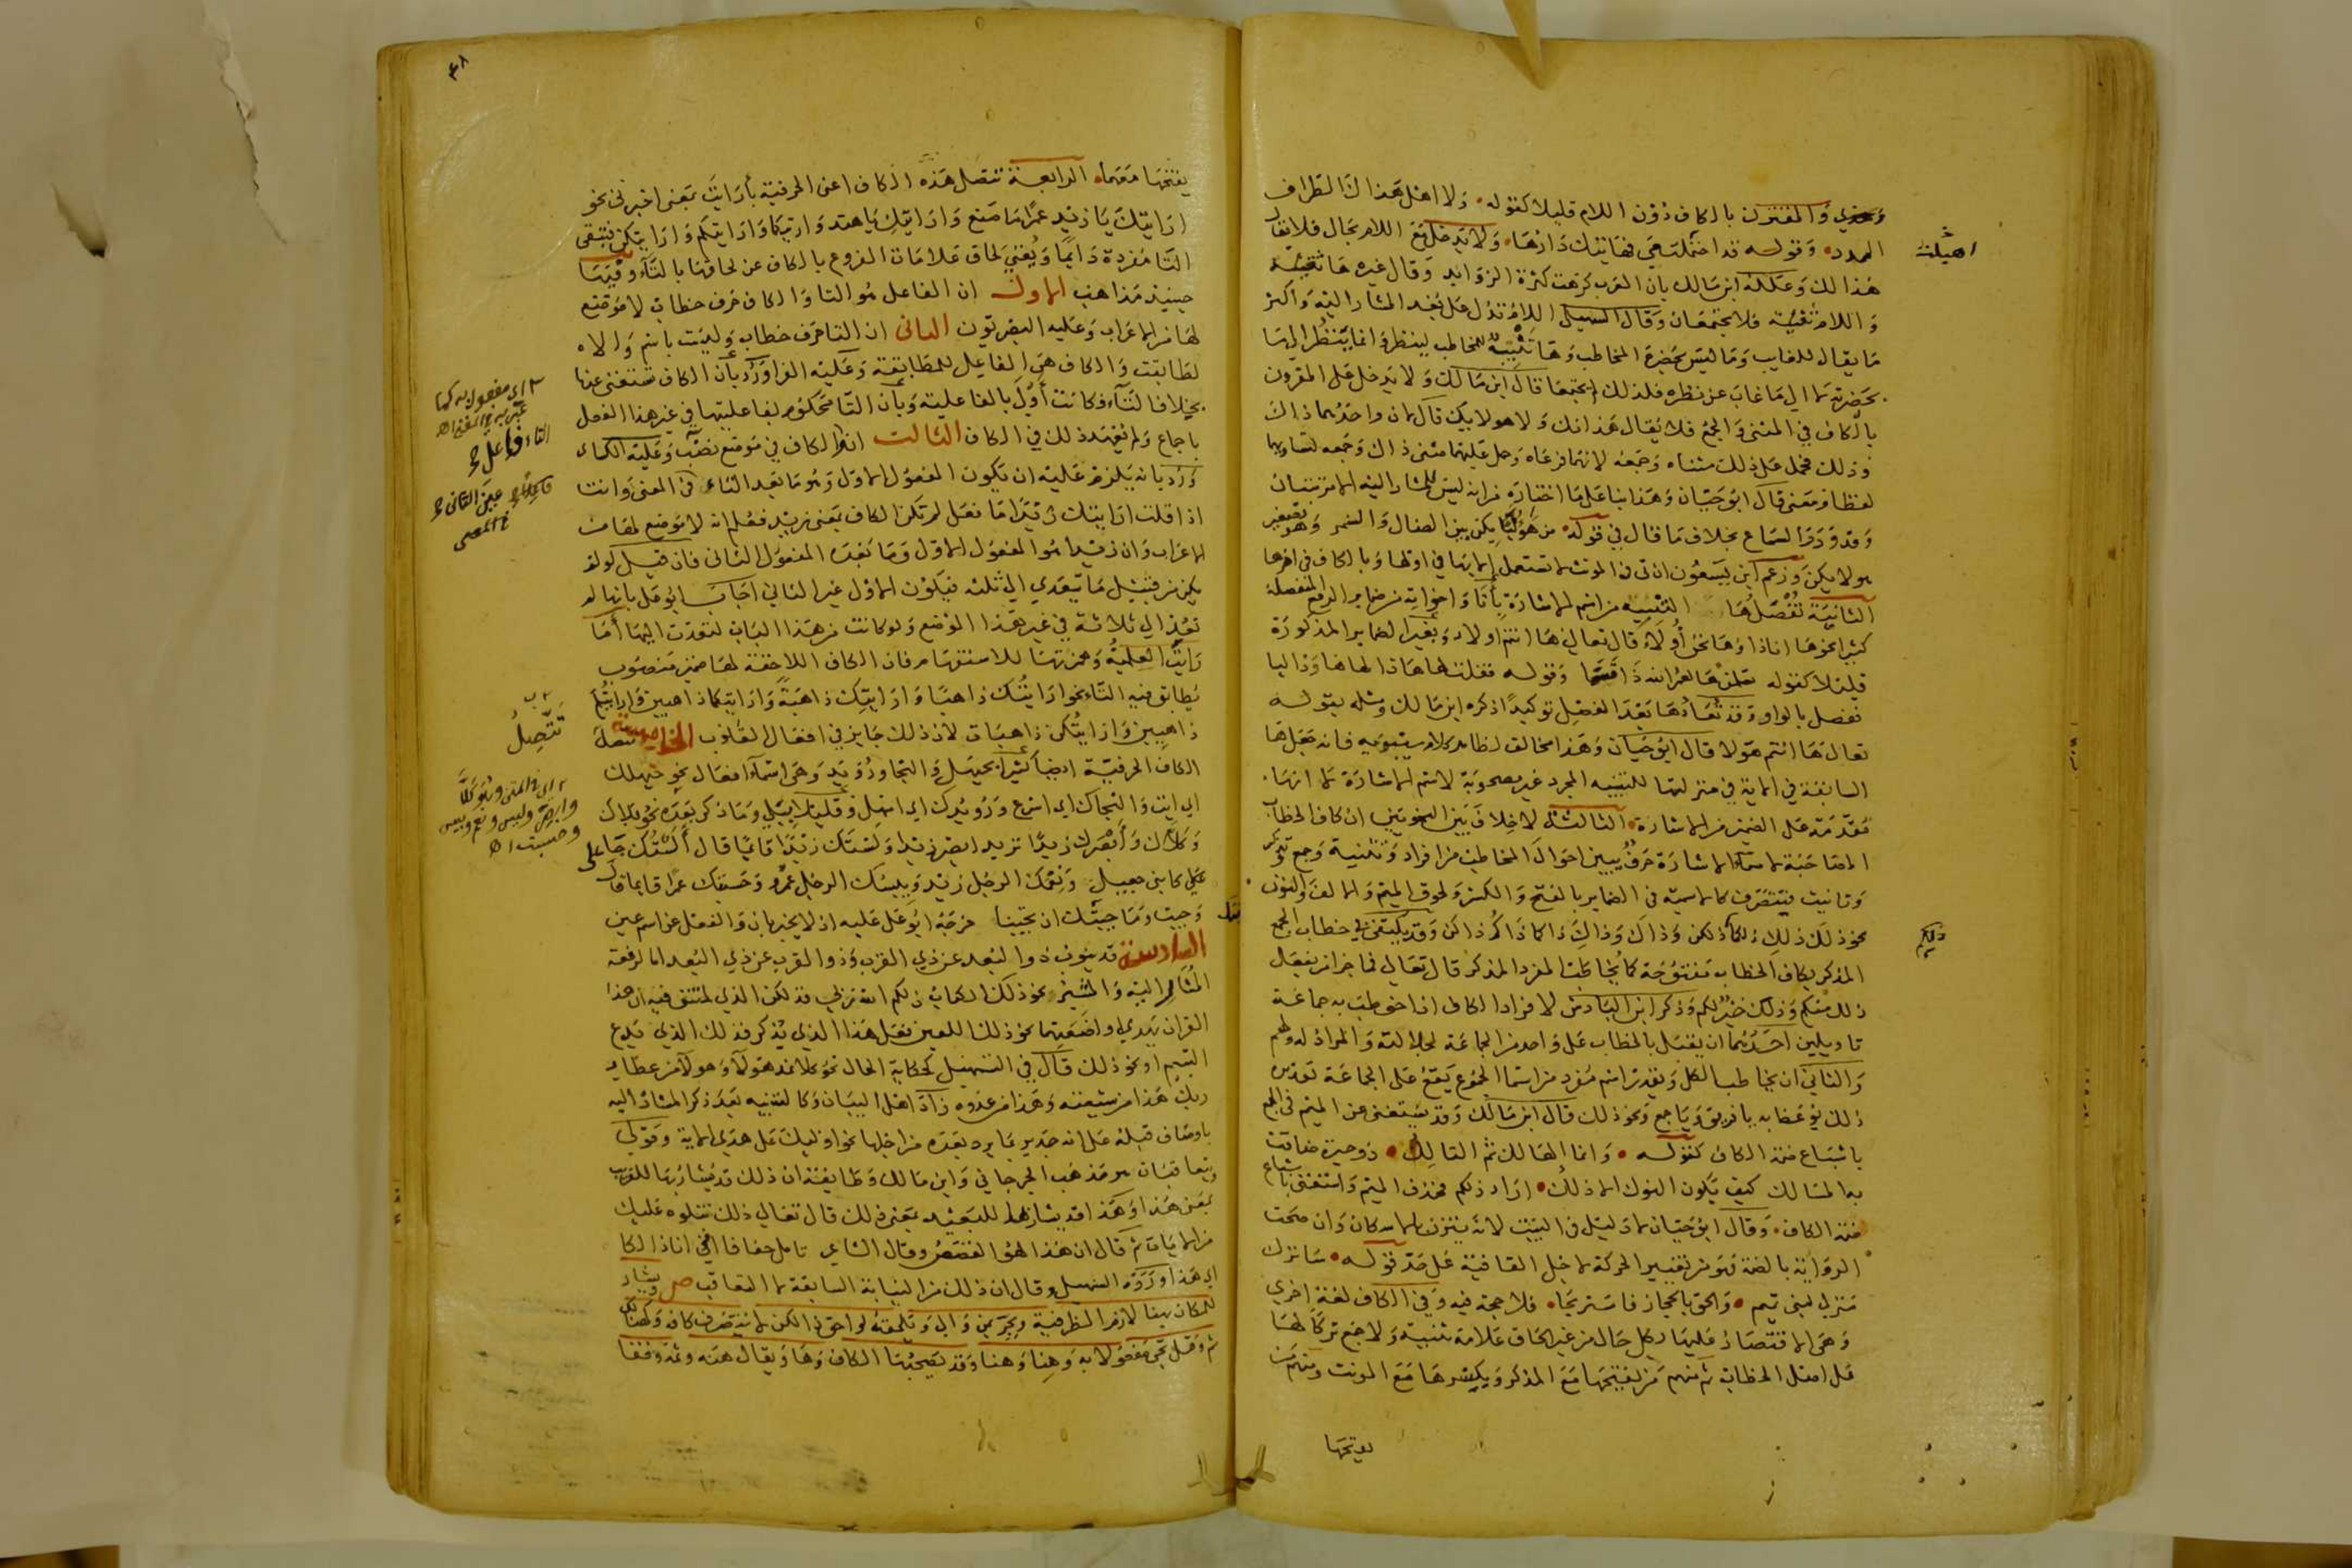 والمقترن بالكاف دون اللام قليلا كقوله ولا اهل هذاك الطراف
الممدد وقوله قد احتملت مي فهاتيك دارها ولا تدخل مع اللام بحال فلا يقال
هذا لك وعلله ابن مالك بان العرب كرهت كثرة الزوايد وقال غيره ها تنبيه
واللام تنبيه فلا يجتمعان وقال السهيلي اللام تدل على بعد المشار اليه واكثر
ما يقال للغايب وما ليس بحضرة المخاطب وها تنبيه للمخاطب لينظر وانما ينظر الى ما
بحضرته لا الى ما غاب عن نظره فلذلك لم يجتمعا قال ابن مالك ولا تدخل على المقرون
بالكاف في المثنى والجمع فلا يقال هذانك ولا هولايك قال لان واحدهما ذاك
وذلك فحمل على ذلك مثناه وجمعه لانهما فرعاه وحمل عليهما مثنى ذاك وجمعه لتساويهما
لفظا ومعنى قال ابو حيان وهذا بنا على ما اختاره من انه ليس للمشار اليه الا مرتبتان
وقد ورد السماع بخلاف ما قال في قوله من هوليائكن بين الضال والسمر وهو تصغير
هولايكن وزعم ابن يسعون ان تى في المونث لا تستعمل الا بها في اولها وبالكاف في اخرها
الثانية تفصل ها التنبيه من اسم الاشارة بانا واخواته من ضماير الرفع المنفصلة
كثيرا نحو ها انا ذا وها نحن أولاء قال تعالى ها انتم اولاء وبغير الضماير المذكورة
قليلا كقوله تعلمن ها لعمر الله ذا قسما وقوله فقلت لها هاذا لها ها وذا ليا
ففصل بالواو وقد تعاد ها بعد الفصل توكيدا ذكره ابن مالك ومثله بقوله
تعالى ها انتم هولا قال ابو حيان وهذا مخالف لظاهر كلام سيبويه فانه جعل ها
السابقة في الاية في منزلتها للتنبيه المجرد غير مصحوبة لاسم الاشارة لا انها
مقدمة على الضمير من الاشارة الثالثة لا خلاف بين النحويين ان كاف الخطاب
المصاحبة لاسماء الاشارة حرف يبين احوال المخاطب من افراد وتثنية وجمع وتذكير
وتانيث فيتصرف كالاسمية في الضماير بالفتح والكسر ولحوق الميم والالف والنون
نحو ذلك ذلك ذلكما ذلكن وذاك وذاك ذاكما ذاكم ذاكن وقد يكتفى في خطاب الجمع
المذكر بكاف الخطاب مفتوحة كما يخاطب المفرد المذكر قال تعالى فما جزا من يفعل
ذلك منكم وذلك خير لكم وذكر ابن الباذش لافراد الكاف اذا خوطب به جماعة
تاويلين احدهما ان يقبل بالخطاب على واحد من الجماعة لجلالته والمراد له ولهم
والثاني ان يخاطب الكل ويقدر اسم مفرد من اسما الجموع يقع على الجماعة تقديره
ذلك يوعظ به يا فريق ويا جمع ونحو ذلك قال ابن مالك وقد يستغنى عن الميم في الجمع
باشباع ضمة الكاف كقوله وانما الهالك ثم التالك ذو حيرة ضاقت
به المسالك كيف يكون النوك الا ذلك اراد ذلكم فحذف الميم واستغنى باشباع
ضمة الكاف وقال ابو حيان لا دليل في البيت لانه يتزن بالاسكان وان صحت
الرواية بالضمة فهو من تغيير الحركة لاجل القافية على حد قوله ساترك
منزلي لبني تميم والحق بالحجاز فاستريحا فلا حجة فيه وفي الكاف لغة اخرى
وهي الاقتصار عليها بكل حال من غير الحاق علامة تثنية ولا جمع تركا لها
على اصل الخطاب ثم منهم من يفتحها مع المذكر ويكسرها مع المونث ومنهم من
يفتحها
ذلكم
٤٨
يفتحها معهما الرابعة تتصل هذه الكاف اعني الحرفية بأرايت بمعنى اخبرني نحو
ارايتك يا زيد عمرا ما صنع وارايتك يا هند وارايتكما وارايتكم وارايتكن فتبقى
التا مفردة دايما ويغني لحاق علامات الفروع بالكاف عن لحاقها بالتاء وفيها
حينيذ مذاهب الاول ان الفاعل هو التا والكاف حرف خطاب لا موضع
لها من الاعراب وعليه البصريون الثانى ان التا حرف خطاب وليست باسم والا
لطابقت والكاف هي الفاعل للمطابقة وعليه الفرا ورد بان الكاف يستغنى عنها
بخلاف التاء فكانت أولى بالفاعلية وبان التا محكوم بفاعليتها في غير هذا الفعل
باجماع ولم يعهد ذلك في الكاف الثالث ان الكاف في موضع نصب وعليه الكساى
ورد بانه يلزم عليه ان تكون المفعول الاول وهو ما بعد التاء في المعنى وانت
اذا قلت ارايتك زيدا ما فعل لم تكن الكاف بمعنى زيد فعلم انه لا موضع لها من
الاعراب وان زيدا هو المفعول الاول وما بعده المفعول الثانى فان قيل لو لم
يكن من قبيل ما يتعدي الى ثلثه فيكون الاول غير الثاني اجاب ابو علي بانها لم
تعد الي ثلاثة في غير هذا الموضع ولو كانت من هذا الباب لتعدت اليها أما
رايت العلمية وهمزتها للاستفهام فان الكاف اللاحقة لها ضمير منصوب
يطابق فيه التاء نحو ارايتك ذاهبا وارايتك ذاهبة وارايتكما ذاهبين وارايتكم
ذاهبين وارايتكن ذاهبات لان ذلك جايز في افعال القلوب الخامسة تتصل
الكاف الحرفية ايضا كثيرا بحيهل والنجا ورويد وهي اسماء افعال نحو حيهلك
اي ايت والنجاك اي اسرع ورويدك اي امهل وقليلا ببلى وما ذكر بعده نحو بلاك
وكلاك وأبصرك زيدا تريد ابصر زيدا ولستك زيدا قايما قال ألستك جاعلى
علي كابني جعيل ونعمك الرجل زيد وبيسك الرجل عمرو وحسبك عمرا قايما قال
وحنت وما حسبتك ان تحينا خرجه ابو علي عليه اذ لا يخبر بان والفعل عن اسم عين
السادسة قد ينوب ذو البعد عن ذي القرب وذو القرب عن ذي البعد اما لرفعة
المشار اليه والمشير نحو ذلك الكتاب ذلكم الله ربي فذلكن الذي لمتنني فيه ان هذا
القران يهدي او اضعتهما نحو ذلك اللعين فعل هذا الذي يذكر فذلك الذي يدع
اليتيم او نحو ذلك قال في التسهيل كحكاية الحال نحو كلا نمد هولاء وهولاء من عطا
ربك هذا من شيعته وهذا من عدوه زاد اهل البيان وكالتنبيه بعد ذكر المشار اليه
باوصاف قبله على انه جدير بما يرد بعده من اجلها نحو اوليك على هدى الاية وقولي
ويتعاقبان هو مذهب الجرجاني وابن مالك وطايفة ان ذلك قد يشار بها للقريب
بمعنى هذا وهذا قد يشار بها للبعيد بمعنى ذلك قال تعالى ذلك نتلوه عليك
من الايات ثم قال ان هذا لهو القصص وقال الشاعر تامل خفافا انني انا ذالكا
اي هذا ورده السهيلي وقال ان ذلك من النيابة السابقة لا التعاقب ص ويشار
للمكان بهنا لازم الظرفية ويجر بمن والى وتلحقه لواحق ذا لكن لا تتصرف كافه وكهنالك
ثم وقل تجي مفعولا به وهنا وهنا وقد تصحبها الكاف وها ويقال هنه وثمه وقفا
تتصل